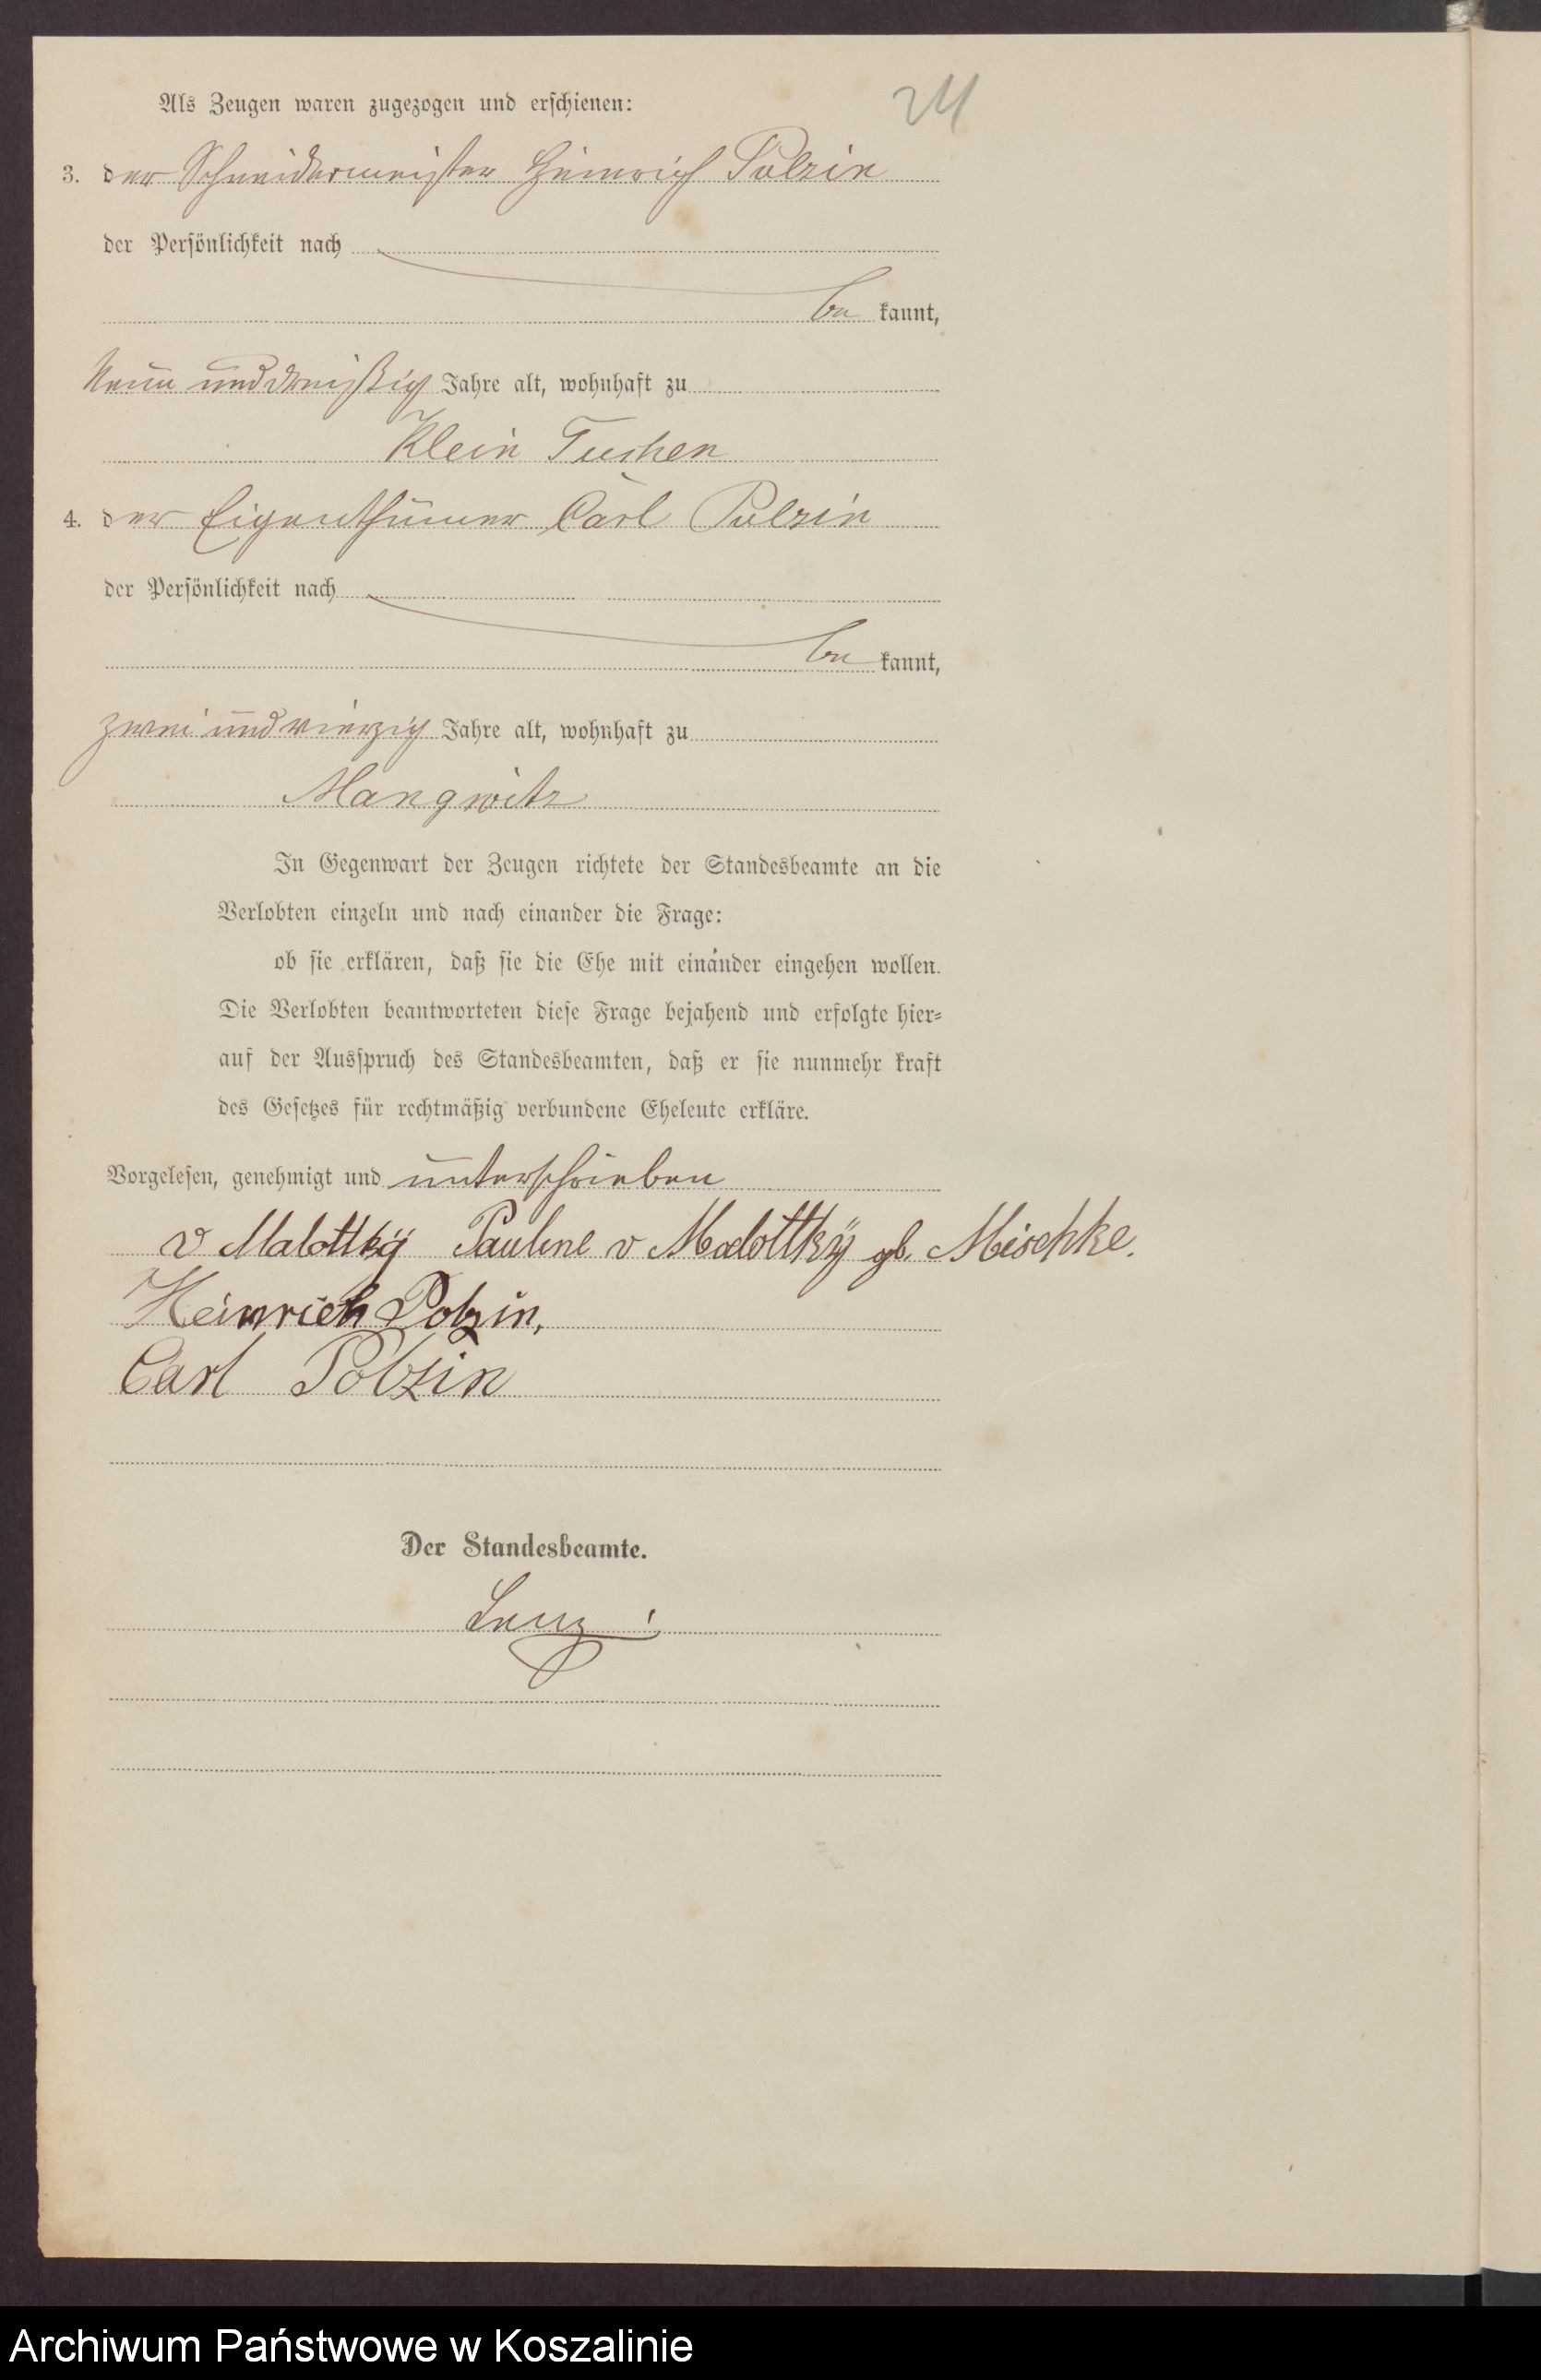 24
Als Zeugen waren zugezogen und erschienen:
3. der Schneidermeister Heinrich Polzin
der Persönlichkeit nach
be kannt,
neun und dreißig Jahre alt, wohnhaft zu
Klein Tuchen
4. der Eigenthümer Carl Polzin
der Persönlichkeit nach
be kannt,
zwei und vierzig Jahre alt, wohnhaft zu
Mangwitz
In Gegenwart der Zeugen richtete der Standesbeamte an die
Verlobten einzeln und nach einander die Frage:
ob sie erklären, daß sie die Ehe mit einander eingehen wollen.
Die Verlobten beantworteten diese Frage bejahend und erfolgte hier-
auf der Ausspruch des Standesbeamten, daß er sie nunmehr kraft
des Gesetzes für rechtmäßig verbundene Eheleute erkläre.
Vorgelesen, genehmigt und unterschrieben
v Malottky Pauline v Malottky gb. Mischke.
Heinrich Polzin,
Carl Polzin
Der Standesbeamte.
Lenz
Archiwum Państwowe w Koszalinie